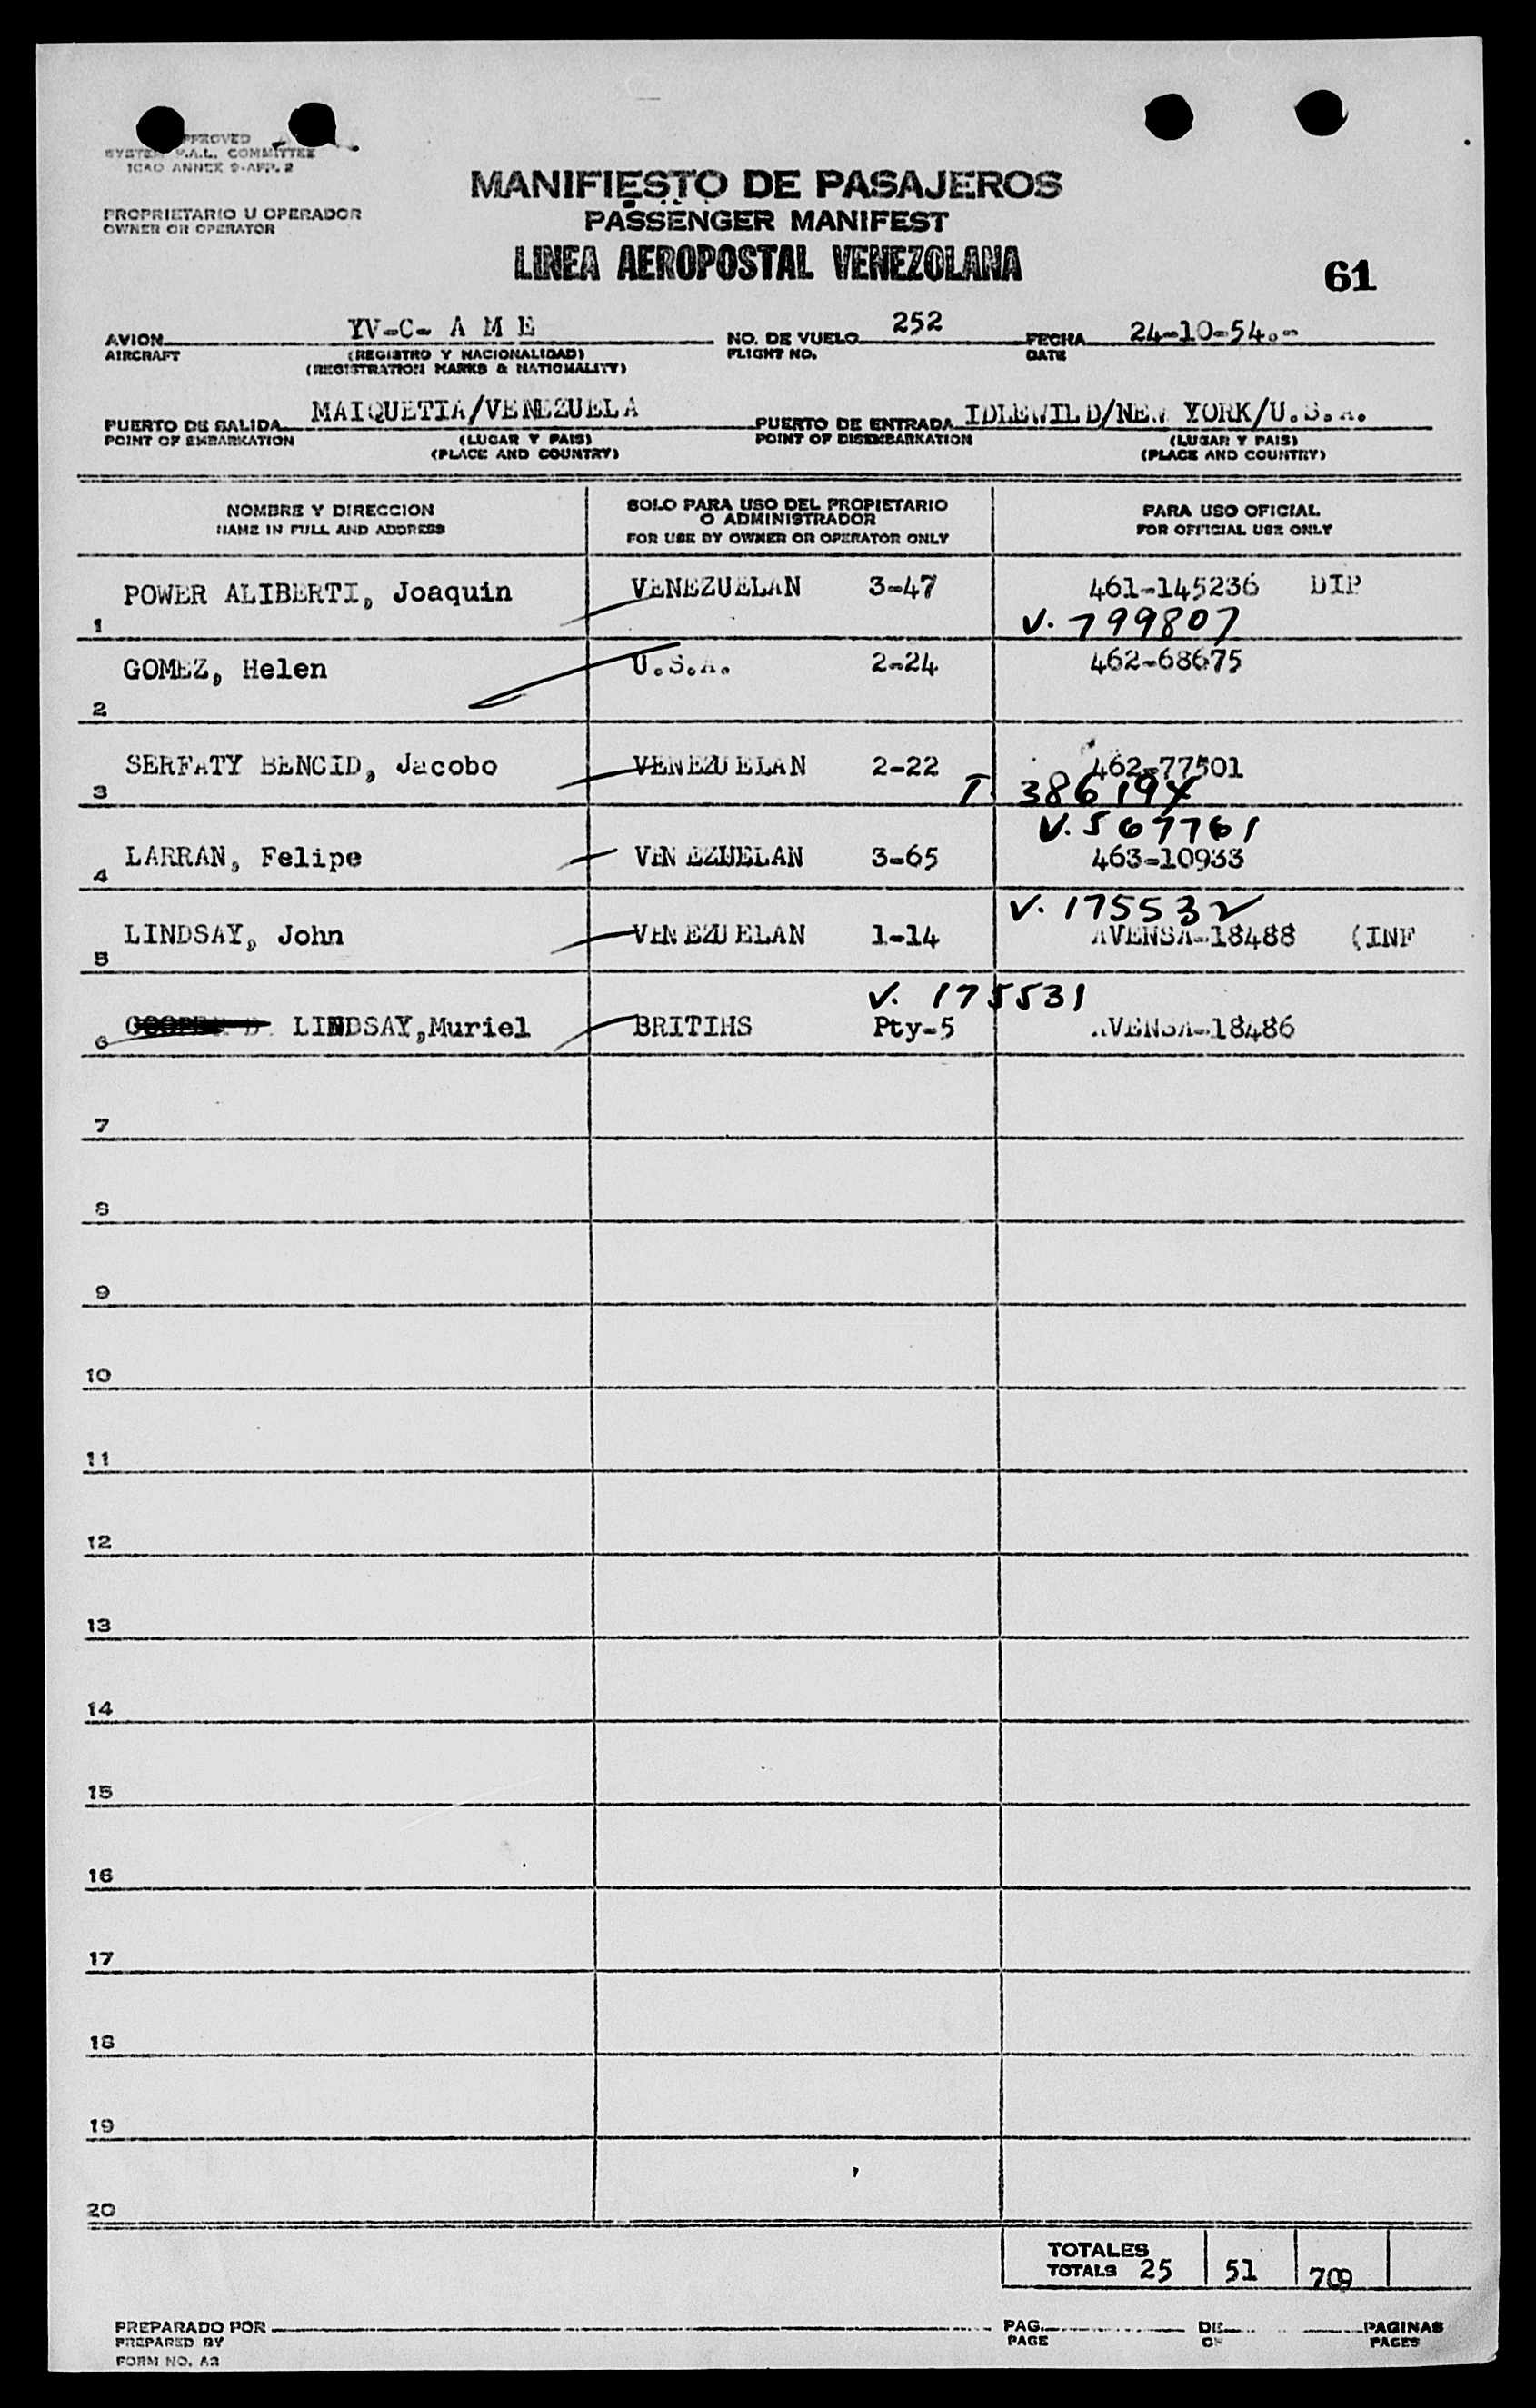 APPROVED
SYSTEM F.A.L. COMMITTEE
ICAO ANNEX 9-APP. 2
MANIFIESTO DE PASAJEROS
PROPRIETARIO U OPERADOR
OWNER OR OPERATOR
PASSENGER MANIFEST
LINEA AEROPOSTAL VENEZOLANA
61
AVION YV-C- A M E NO. DE VUELO 252 FECHA 24-10-54.-
AIRCRAFT (REGISTRO Y NACIONALIDAD) FLIGHT NO. DATE
(REGISTRATION MARKS & NATIONALITY)
PUERTO DE SALIDA MAIQUETIA/VENEZUELA PUERTO DE ENTRADA IDLEWILD/NEW YORK/U.S.A.
POINT OF EMBARKATION (LUGAR Y PAIS) POINT OF DISEMBARKATION (LUGAR Y PAIS)
(PLACE AND COUNTRY) (PLACE AND COUNTRY)
NOMBRE Y DIRECCION SOLO PARA USO DEL PROPIETARIO O ADMINISTRADOR PARA USO OFICIAL
NAME IN FULL AND ADDRESS FOR USE BY OWNER OR OPERATOR ONLY FOR OFFICIAL USE ONLY
POWER ALIBERTI, Joaquin VENEZUELAN 3-47 461-145236 DIP
1 V. 799807
GOMEZ, Helen U.S.A. 2-24 462-68675
2
SERFATY BENCID, Jacobo VENEZUELAN 2-22 462-77501
3 T. 386194
V. 567761
4 LARRAN, Felipe VENEZUELAN 3-65 463-10933
V. 175532
LINDSAY, John VENEZUELAN 1-14 AVENSA-18488 (INF
5
V. 175531
6 LINDSAY,Muriel BRITIHS Pty-5 AVENSA-18486
7
8
9
10
11
12
13
14
15
16
17
18
19
20
TOTALES
TOTALS 25 51 709
PREPARADO POR PAG. DE PAGINAS
PREPARED BY PAGE OF PAGES
FORM NO. A2